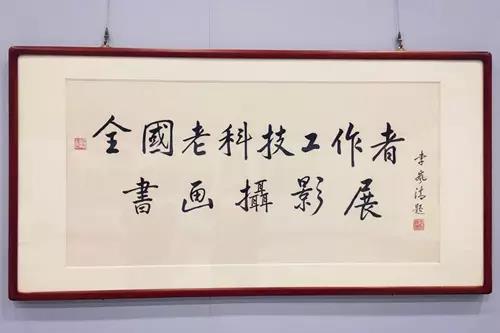 全國老科技工作者
書画攝影展
李嵐清題